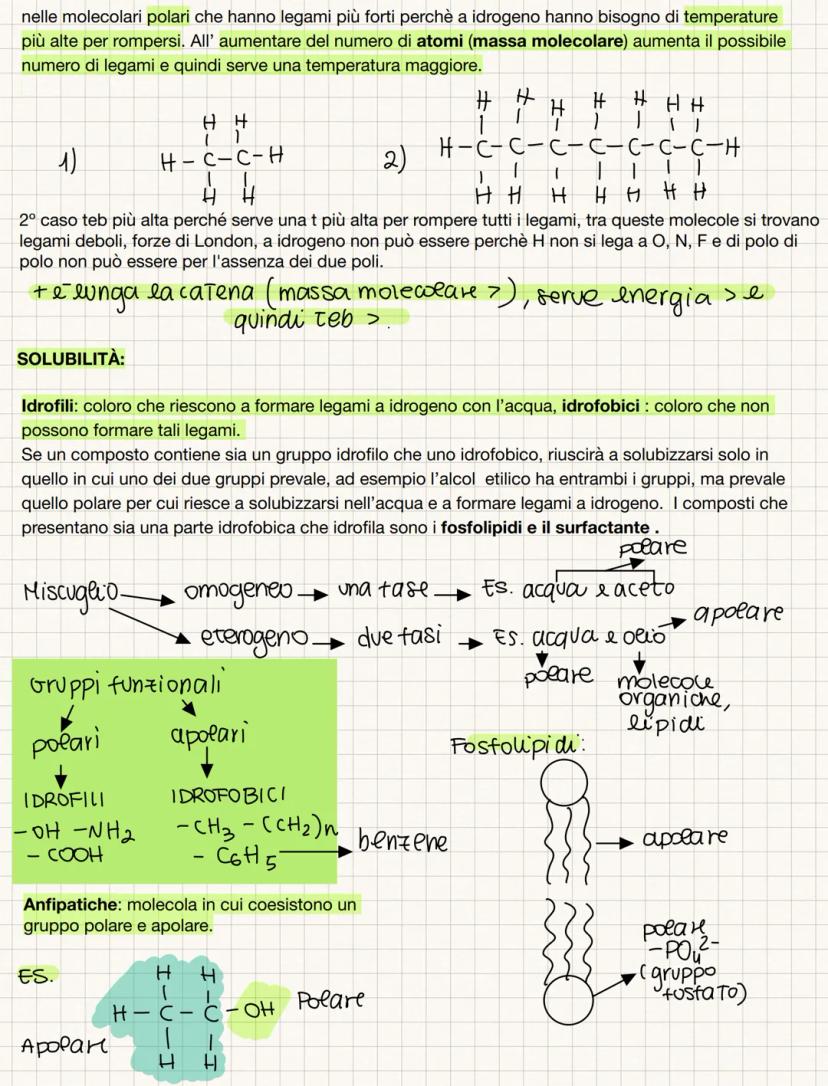 nelle molecolari polari che hanno legami più forti perchè a idrogeno hanno bisogno di temperature
più alte per rompersi. All' aumentare del numero di atomi (massa molecolare) aumenta il possibile
numero di legami e quindi serve una temperatura maggiore.
H H
1) H - C - C - H
H H
H H H H H H H
2) H - C - C - C - C - C - C - C - H
H H H H H H H
2° caso teb più alta perché serve una t più alta per rompere tutti i legami, tra queste molecole si trovano
legami deboli, forze di London, a idrogeno non può essere perchè H non si lega a O, N, F e di polo di
polo non può essere per l'assenza dei due poli.
+ è lunga la catena (massa molecolare >), serve energia > e
quindi teb >.
SOLUBILITÀ:
Idrofili: coloro che riescono a formare legami a idrogeno con l'acqua, idrofobici : coloro che non
possono formare tali legami.
Se un composto contiene sia un gruppo idrofilo che uno idrofobico, riuscirà a solubizzarsi solo in
quello in cui uno dei due gruppi prevale, ad esempio l'alcol etilico ha entrambi i gruppi, ma prevale
quello polare per cui riesce a solubizzarsi nell'acqua e a formare legami a idrogeno. I composti che
presentano sia una parte idrofobica che idrofila sono i fosfolipidi e il surfactante .
polare
Miscuglio → omogeneo → una fase → Es. acqua e aceto
→ eterogeno → due fasi → Es. acqua e olio → apolare
polare
molecole
organiche,
lipidi
Gruppi funzionali
polari
apolari
IDROFILI
IDROFOBICI
-OH -NH2
- COOH
-CH3 -(CH2)n
- C6H5 → benzene
Fosfolipidi:
→ apolare
polare
-PO4²-
(gruppo
fosfato)
Anfipatiche: molecola in cui coesistono un
gruppo polare e apolare.
ES.
H H
H - C - C - OH Polare
Apolare
H H